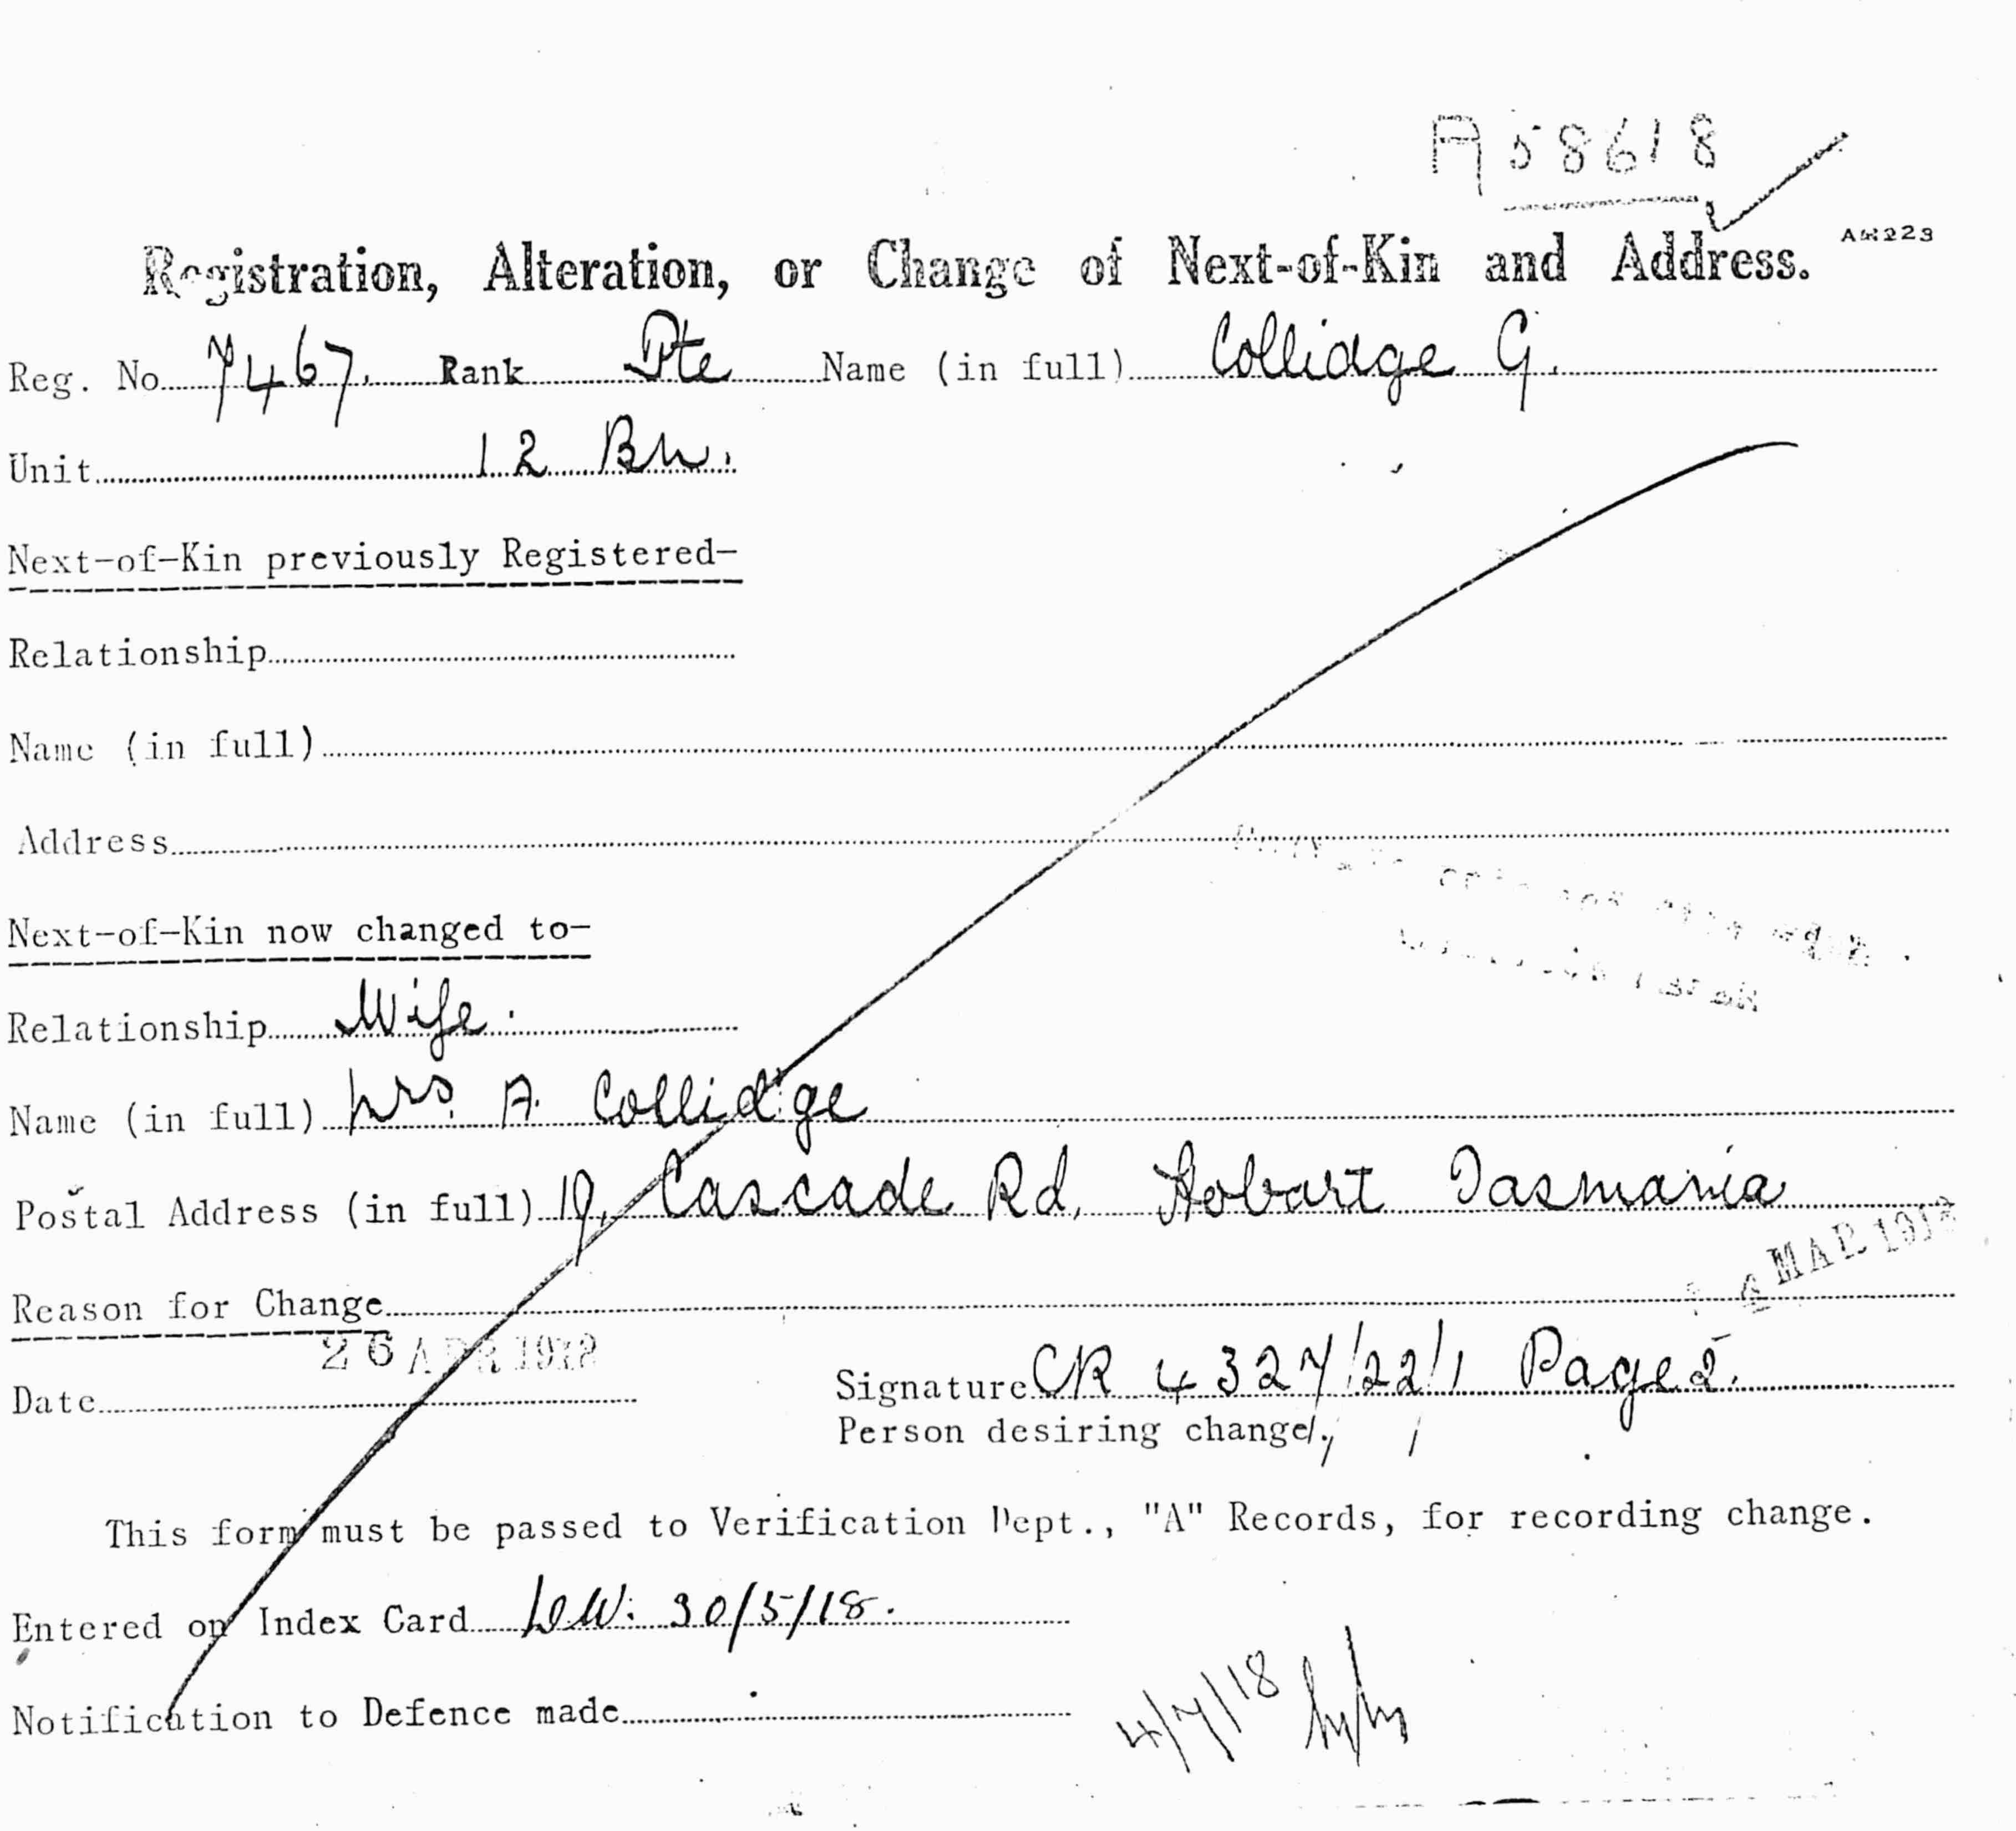 A 58618
Registration, Alteration, or Change of Next-of-Kin and Address. AR223
Reg. No 7467. Rank Pte Name (in full) Collidge G.
Unit 12 Bn.
Next-of-Kin previously Registered-
Relationship
Name (in full)
Address
Next-of-Kin now changed to-
Relationship Wife.
Name (in full) Mrs. A. Collidge
Postal Address (in full) 19, Cascade Rd, Hobart Tasmania
MAR 1918
Reason for Change
26 APR 1918
Date
Signature CR 4327/22/1 Page 2.
Person desiring change.
This form must be passed to Verification Dept., "A" Records, for recording change.
Entered on Index Card 30/5/18.
Notification to Defence made
4/7/18